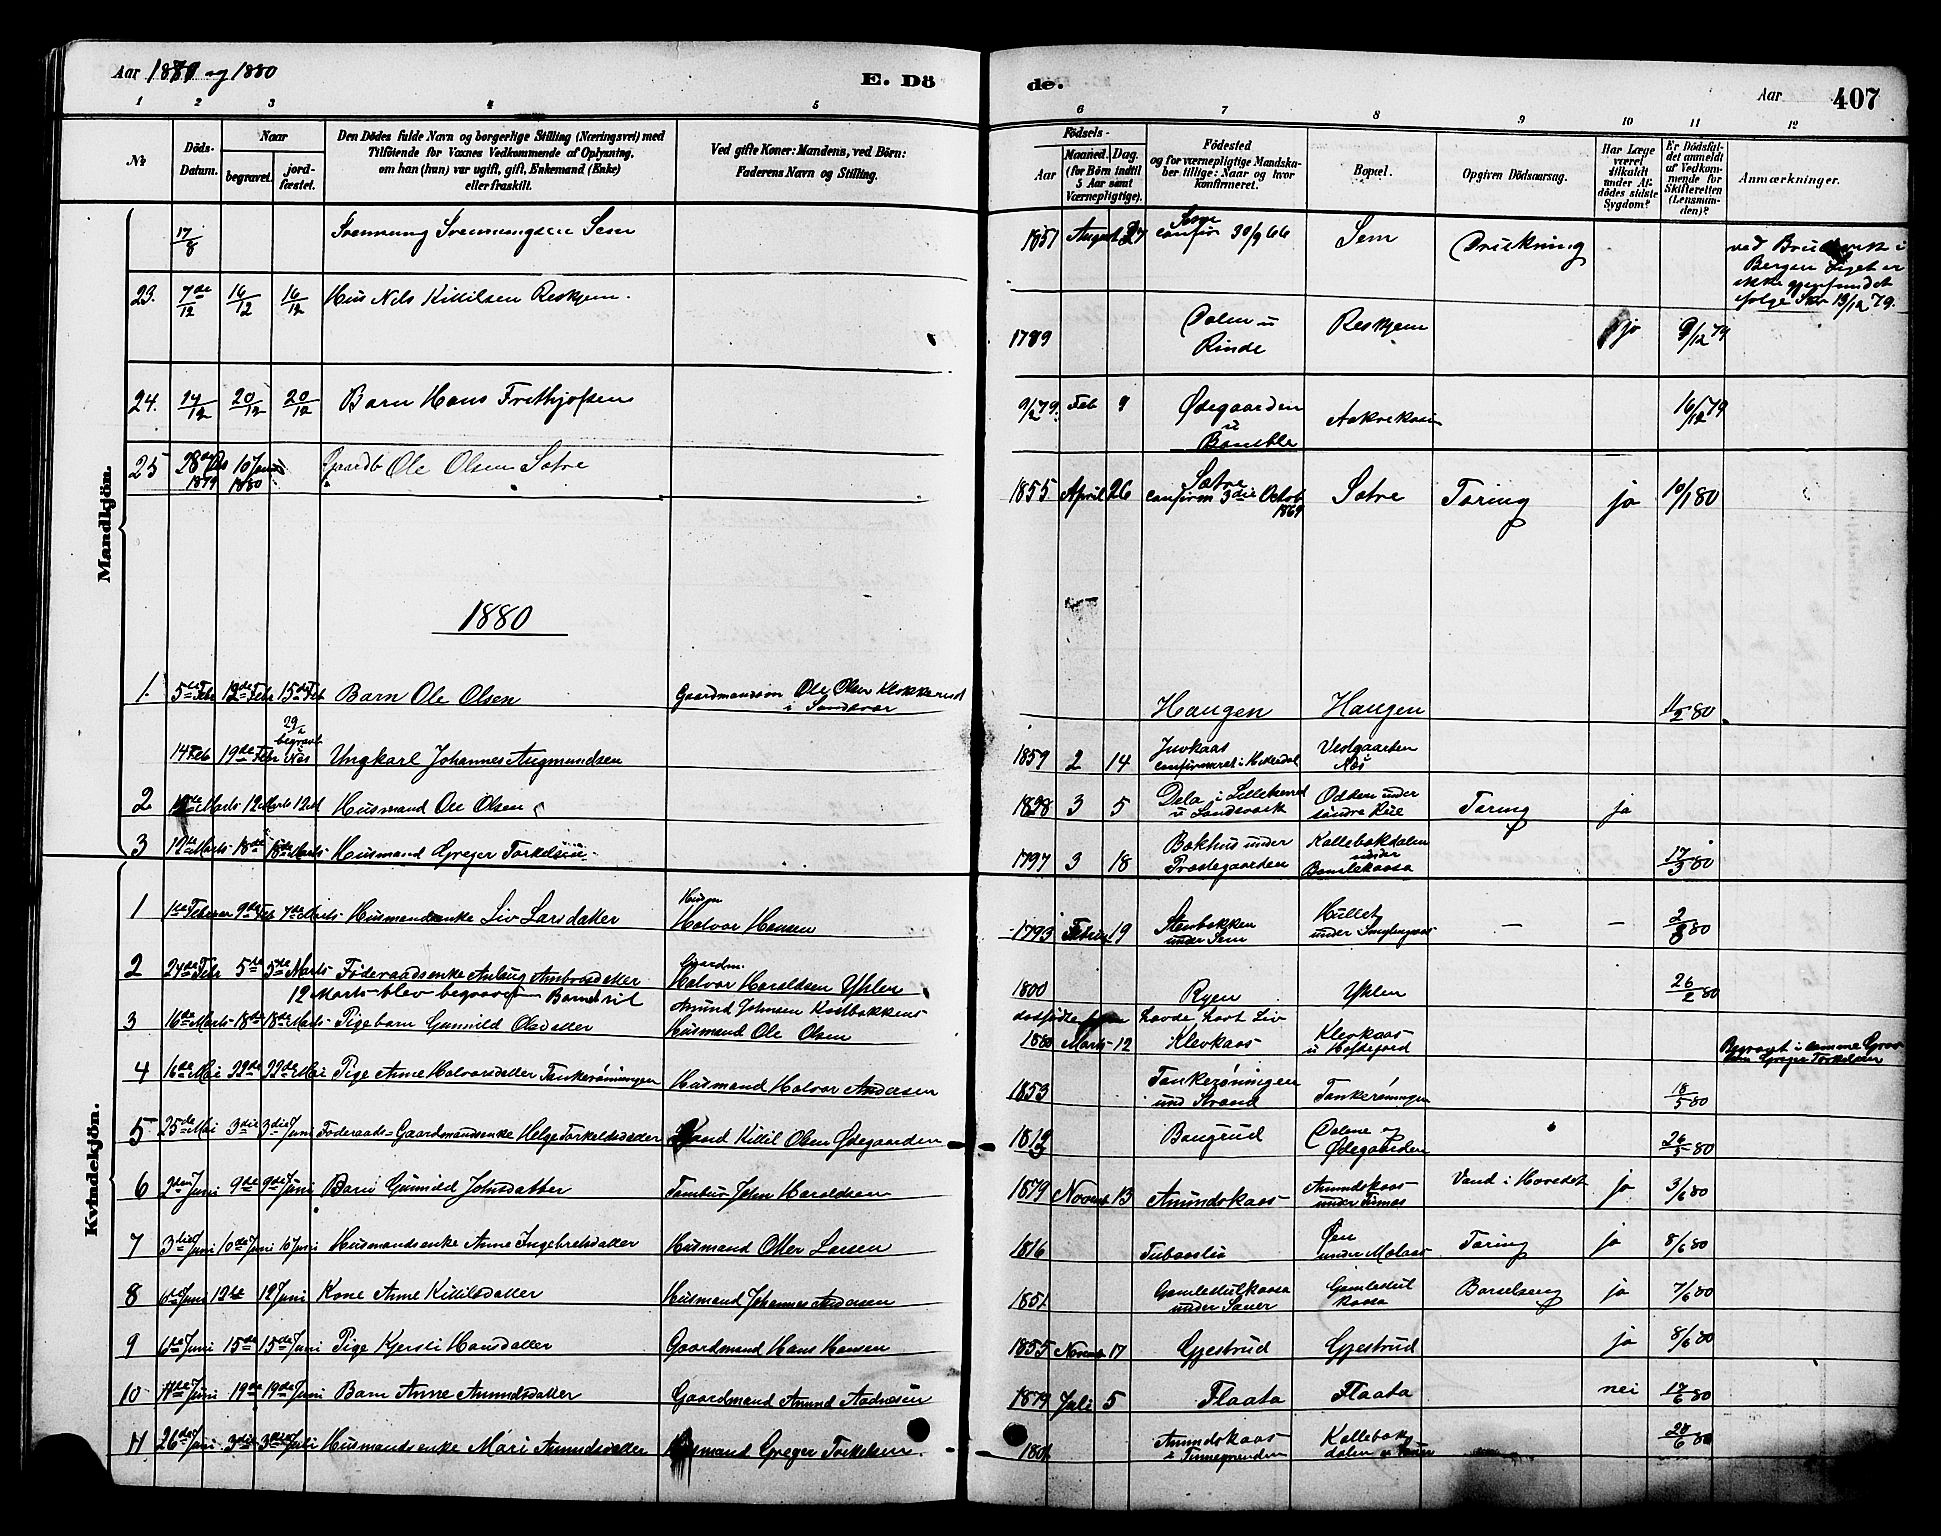 Aar 1879 og 1880
E. Dö
de.
Aar
407
1 2 3 4 5 6 7 8 9 10 11 12
No
Döds-Datum.
Naar
begravet.
jord-fæstet.
Den Dödes fulde Navn og borgerlige Stilling (Næringsvei) med
Tilföiende for Voxnes Vedkommende af Oplysning,
om han (hun) var ugift, gift, Enkemand (Enke)
eller fraskilt.
Ved gifte Koner: Mandens, ved Börn:
Faderens Navn og Stilling.
Födsels-
Aar
Maaned. Dag.
(for Börn indtil
5 Aar samt
Værnepligtige).
Födested
og for værnepligtige Mandska-
ber tillige: Naar og hvor
konfirmeret.
Bopæl.
Opgiven Dödsaarsag.
Har Læge
været
tilkaldt
under Af-
dödes sidste
Sygdom?
Er Dödsfal-
det anmeldt
af Vedkom-
mende for
Skifteretten
(Lensman-
den)?
Anmærkninger.
Mandkjön.
17/8 Svennung Svennungsen Sem 1851 August 27 confir 30/9 66 Sem Drukning
ved Brudvik i
Bergen Liget er
ikke gjenfundet
følge Skr 13/12 79.
23. 7de/12 16/12 16/12 Hus Nels Kittilsen Reskjem. 1789 Dalen u Rinde Reskjem ja 9/12 79
24. 14/12 20/12 20/12 Barn Hans Frethjofsen 9/2 79. Feb 9 Ødegaarden u Bamble 16/12 79
25 28de Des 1879 10 Jan 1880 Gaardb Ole Olsen Satre 1855 April 26 Satre confirm 3die Octob 1869 Satre Taring ja 10/1 80
1880
1. 5te Febr 12de Febr 15de Feb Barn Ole Olsen Gaardmandsøn Ole Olsen Klokkerud i Sandsvær Haugen Haugen 11/2 80
14 Feb 19de Febr 29/2 begravt Næs Ungkarl Johannes Augmundsen 1859 2 14 Juvkaas confirmeret i Hitterdal Vestgaarden Næs
2 12te Marts 12 Marts Husmand Ole Olsen 1828 3 5 Odden under søndre Rue Taring ja
3 12te Marts 18de 18de Marts Husmand Greger Torkelsen 1797 3 18 Bakhus under Prestegaarden Kallebakdalen under 17/3 80
Kvindekjön.
1 1ste Februar 9de Feb 7de Marts Husmandsenke Liv Larsdatter Husm Halvor Hansen 1793 Februar 19 Stenbakken under Sem Hullet under — — 2/3 80
2 24de Febr 5te 5te Marts Føderaadsenke Aslaug Ambrosdatter Gaardm. Halvor Haraldsen Yklen 1800 Ryen Yklen 26/2 80
12 Marts blev begravet Amund Johnsen Kostbakkens dødfødte havde havt Liv
3 16de Marts 18de 18de Marts Pigebarn Gunild Olsdatter Husmand Ole Olsen 1880 Marts 12 Klevkaas Klevkaas u Hoftefjord
Begravt i samme Grav som Greger Torkelsen
4 16de Mai 22de 22de Mai Pige Anne Halvorsdatter Tankerøningen Husmand Halvor Andersen 1853 Tankerøningen und Strand Tankerøningen 18/5 80
5 25de Mai 3die 3die Juni Føderaads= Gaardmandsenke Helge Torkeldsdatter Kittil Olsen Ødegaarden Baugrud Dalene og Ødegaarden 26/5 80
6 2den Juni 9de 9de Juni Barn Gunild Johnsdatter Tambur John Haraldsen 1879 Novemb 13 Amundskaas Amundskaas under Tinnes Vand i Hovedet ja 3/6 80
7 3die Juni 10de Juni 10 Juni Husmandsenke Anne Ingebretsdatter Husmand Otter Larsen 1816 Øen under Molaas Taring ja 8/6 80
8 6te Juni 12te 12 Juni Kone Anne Kittilsdatter Husmand Johannes Andersen 1851 Gamlestulkaasa under Sauer Gamlestul kaasa Barselseng ja 7/6 80
9 6te Juni 15de 15de Juni Pige Kjersti Hansdatter Gaardmand Hans Hansen 1855 Novemb 17 Gjestrud Gjestrud ja 8/6 80
10 11te Juni 19de 19de Juni Barn Anne Amundsdatter Gaardmand Amund Aadnesen 1879 Juli 5 Flaata Flaata nei 17/6 80
11 26de Juni 3die 3die Juli Husmandsenke Mari Amundsdatter Husmand Greger Torkelsen. 1801 Amundskaas i Tinnegrenden Kallebak dalen 28/6 80